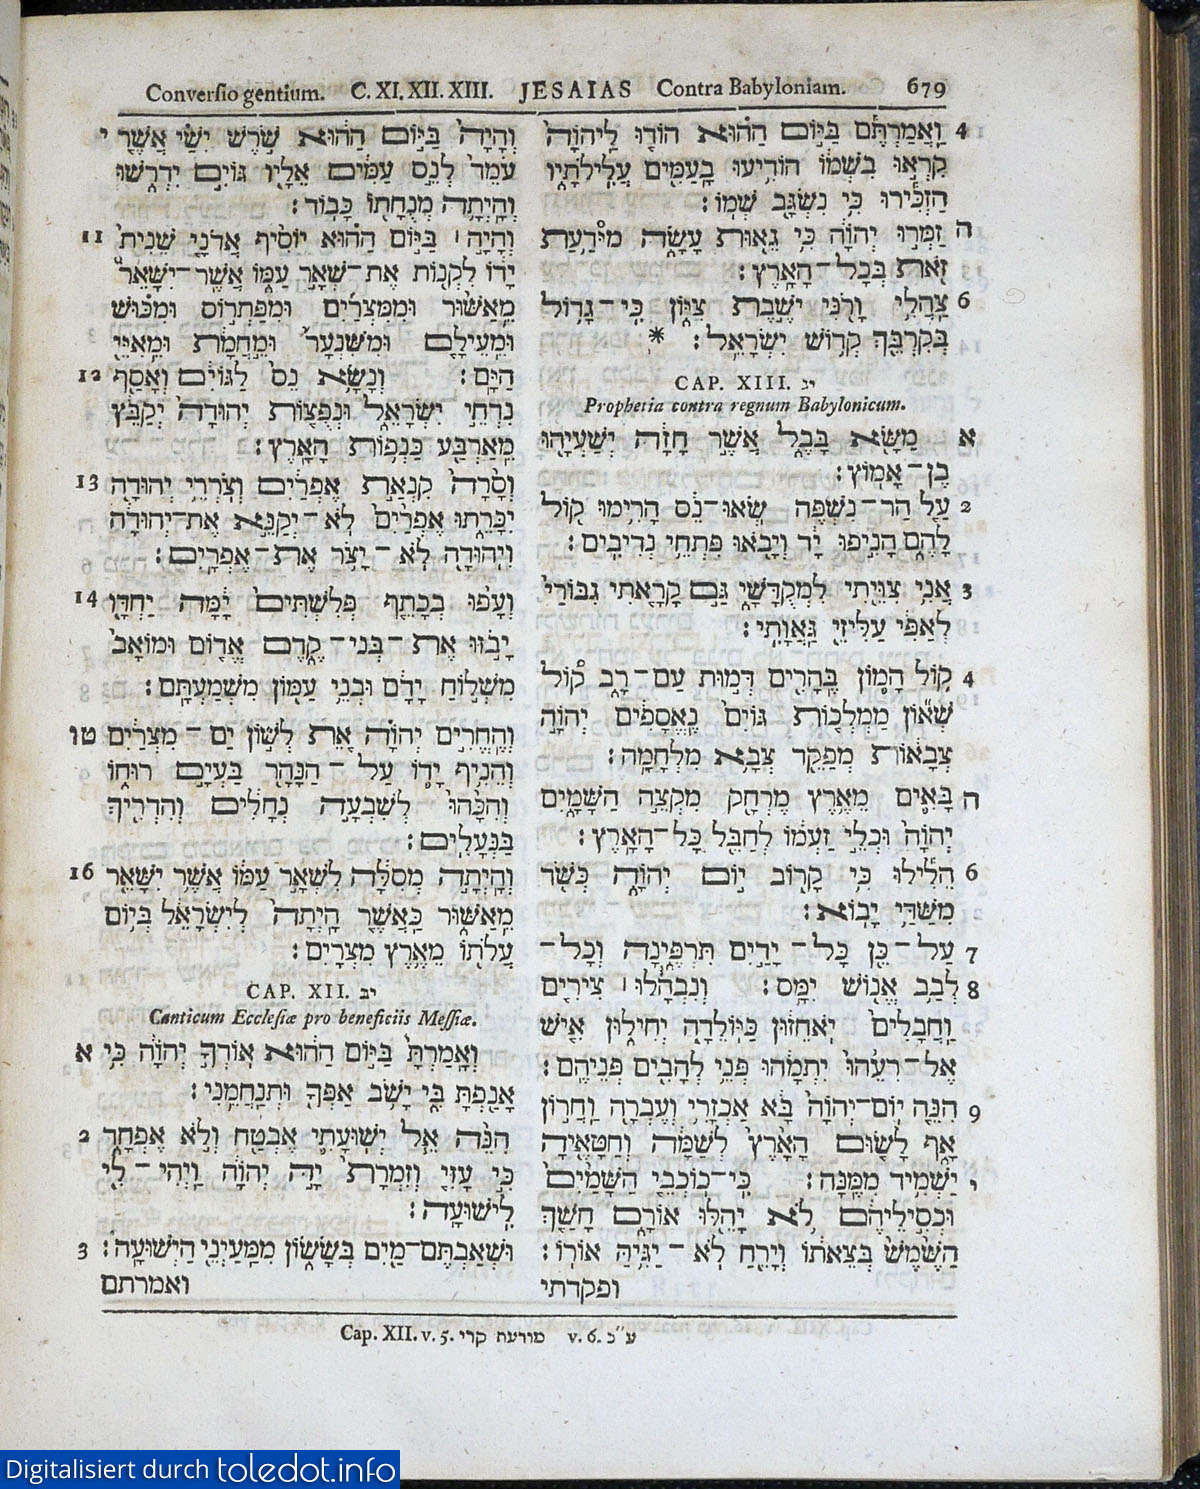 Conversio gentium. C. XI. XII. XIII. JESAIAS Contra Babyloniam. 679
י וְהָיָה בַּיּוֹם הַהוּא שֹׁרֶשׁ יִשַׁי אֲשֶׁר
עֹמֵד לְנֵס עַמִּים אֵלָיו גּוֹיִם יִדְרֹשׁוּ
וְהָיְתָה מְנֻחָתוֹ כָּבוֹד׃
11 וְהָיָה ׀ בַּיּוֹם הַהוּא יוֹסִיף אֲדֹנָי שֵׁנִית
יָדוֹ לִקְנוֹת אֶת־שְׁאָר עַמּוֹ אֲשֶׁר־יִשָּׁאֵר
מֵאַשּׁוּר וּמִמִּצְרַיִם וּמִפַּתְרוֹס וּמִכּוּשׁ
וּמֵעֵילָם וּמִשִּׁנְעָר וּמֵחֲמָת וּמֵאִיֵּי
12 הַיָּם׃ וְנָשָׂא נֵס לַגּוֹיִם וְאָסַף
נִדְחֵי יִשְׂרָאֵל וּנְפֻצוֹת יְהוּדָה יְקַבֵּץ
מֵאַרְבַּע כַּנְפוֹת הָאָרֶץ׃
13 וְסָרָה קִנְאַת אֶפְרַיִם וְצֹרְרֵי יְהוּדָה
יִכָּרֵתוּ אֶפְרַיִם לֹא־יְקַנֵּא אֶת־יְהוּדָה
וִיהוּדָה לֹא־יָצֹר אֶת־אֶפְרָיִם׃
14 וְעָפוּ בְכָתֵף פְּלִשְׁתִּים יָמָּה יַחְדָּו
יָבֹזּוּ אֶת־בְּנֵי־קֶדֶם אֱדוֹם וּמוֹאָב
מִשְׁלוֹחַ יָדָם וּבְנֵי עַמּוֹן מִשְׁמַעְתָּם׃
טו וְהֶחֱרִים יְהוָה אֵת לְשׁוֹן יָם־מִצְרַיִם
וְהֵנִיף יָדוֹ עַל־הַנָּהָר בַּעְיָם רוּחוֹ
וְהִכָּהוּ לְשִׁבְעָה נְחָלִים וְהִדְרִיךְ
בַּנְּעָלִים׃
16 וְהָיְתָה מְסִלָּה לִשְׁאָר עַמּוֹ אֲשֶׁר יִשָּׁאֵר
מֵאַשּׁוּר כַּאֲשֶׁר הָיְתָה לְיִשְׂרָאֵל בְּיוֹם
עֲלֹתוֹ מֵאֶרֶץ מִצְרָיִם׃
CAP. XII. יב
Canticum Ecclesiæ pro beneficiis Messiæ.
א וְאָמַרְתָּ בַּיּוֹם הַהוּא אוֹדְךָ יְהוָה כִּי
אָנַפְתָּ בִּי יָשֹׁב אַפְּךָ וּתְנַחֲמֵנִי׃
2 הִנֵּה אֵל יְשׁוּעָתִי אֶבְטַח וְלֹא אֶפְחָד
כִּי עָזִּי וְזִמְרָת יָהּ יְהוָה וַיְהִי־לִי
לִישׁוּעָה׃
3 וּשְׁאַבְתֶּם־מַיִם בְּשָׂשׂוֹן מִמַּעַיְנֵי הַיְשׁוּעָה׃
ואמרתם
4 וַאֲמַרְתֶּם בַּיּוֹם הַהוּא הוֹדוּ לַיהוָה
קִרְאוּ בִשְׁמוֹ הוֹדִיעוּ בָעַמִּים עֲלִילֹתָיו
הַזְכִּירוּ כִּי נִשְׂגָּב שְׁמוֹ׃
ה זַמְּרוּ יְהוָה כִּי גֵאוּת עָשָׂה מיּדַעַת
זֹאת בְּכָל־הָאָרֶץ׃
6 צַהֲלִי וָרֹנִּי יוֹשֶׁבֶת צִיּוֹן כִּי־גָדוֹל
בְּקִרְבֵּךְ קְדוֹשׁ יִשְׂרָאֵל׃ *
CAP. XIII. יג
Prophetia contra regnum Babylonicum.
א מַשָּׂא בָּבֶל אֲשֶׁר חָזָה יְשַׁעְיָהוּ
בֶּן־אָמוֹץ׃
2 עַל הַר־נִשְׁפֶּה שְׂאוּ־נֵס הָרִימוּ קוֹל
לָהֶם הָנִיפוּ יָד וְיָבֹאוּ פִּתְחֵי נְדִיבִים׃
3 אֲנִי צִוֵּיתִי לִמְקֻדָּשָׁי גַּם קָרָאתִי גִבּוֹרַי
לְאַפִּי עַלִּיזֵי גַּאֲוָתִי׃
4 קוֹל הָמוֹן בֶּהָרִים דְּמוּת עַם־רָב קוֹל
שְׁאוֹן מַמְלְכוֹת גּוֹיִם נֶאֱסָפִים יְהוָה
צְבָאוֹת מְפַקֵּד צְבָא מִלְחָמָה׃
ה בָּאִים מֵאֶרֶץ מֶרְחָק מִקְצֵה הַשָּׁמָיִם
יְהוָה וּכְלֵי זַעְמוֹ לְחַבֵּל כָּל־הָאָרֶץ׃
6 הֵילִילוּ כִּי קָרוֹב יוֹם יְהוָה כְּשֹׁד
מִשַּׁדַּי יָבוֹא׃
7 עַל־כֵּן כָּל־יָדַיִם תִּרְפֶּינָה וְכָל־
8 לְבַב אֱנוֹשׁ יִמָּס׃ וְנִבְהָלוּ ׀ צִירִים
וַחֲבָלִים יֹאחֵזוּן כַּיּוֹלֵדָה יְחִילוּן אִישׁ
אֶל־רֵעֵהוּ יִתְמָהוּ פְּנֵי לְהָבִים פְּנֵיהֶם׃
9 הִנֵּה יוֹם־יְהוָה בָּא אַכְזָרִי וְעֶבְרָה וַחֲרוֹן
אָף לָשׂוּם הָאָרֶץ לְשַׁמָּה וְחַטָּאֶיהָ
י יַשְׁמִיד מִמֶּנָּה׃ כִּי־כוֹכְבֵי הַשָּׁמַיִם
וּכְסִילֵיהֶם לֹא יָהֵלּוּ אוֹרָם חָשַׁךְ
הַשֶּׁמֶשׁ בְּצֵאתוֹ וְיָרֵחַ לֹא־יַגִּיהַּ אוֹרוֹ׃
ופקדתי
Cap. XII. v. 5. מודעת קרי v. 6. ע״כ
Digitalisiert durch toledot.info